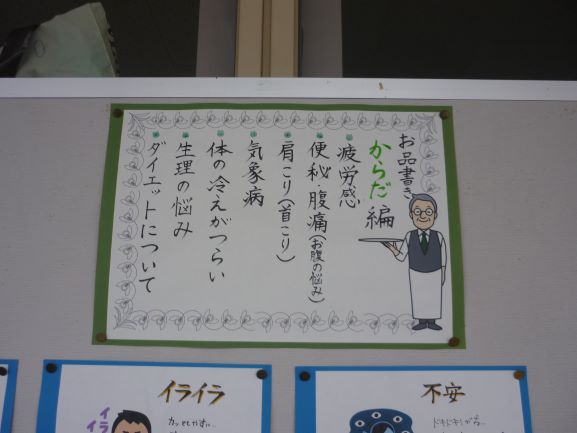 お品書き
からだ編
疲労感
便秘・腹痛(お腹の悩み)
肩こり(首こり)
気象病
体の冷えがつらい
生理の悩み
ダイエットについて
イライラ
カッとしやすい…
イライ
不安
ドキドキしがち…